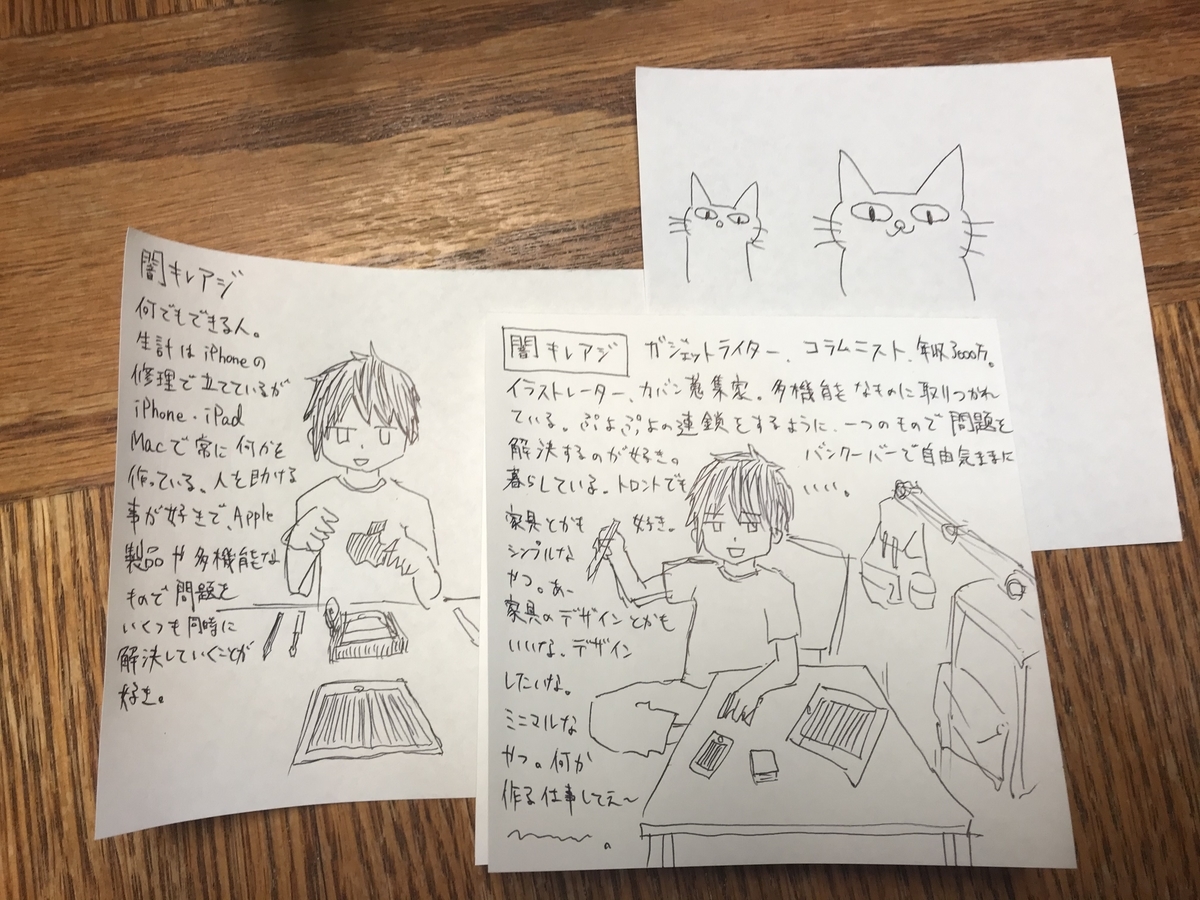 闇キレアジ
何でもできる人。
生計は iPhoneの
修理で立てているが
iPhone・iPad
Macで常に何かを
作っている。人を助ける
事が好きで、Apple
製品や多機能な
もので問題を
いくつも同時に
解決していくことが
好き。
闇キレアジ ガジェットライター、コラムニスト、年収3000万。
イラストレーター、カバン蒐集家。多機能なものに取りつかれ
ている。ぷよぷよの連鎖をするように、一つのもので問題を
解決するのが好き。 バンクーバーで自由気ままに
暮らしている。トロントでも いい。
家具とかも 好き。
シンプルな
やつ。あー
家具のデザインとかも
いいな、デザイン
したいな。
ミニマルな
やつ。何か
作る仕事してえ〜
。